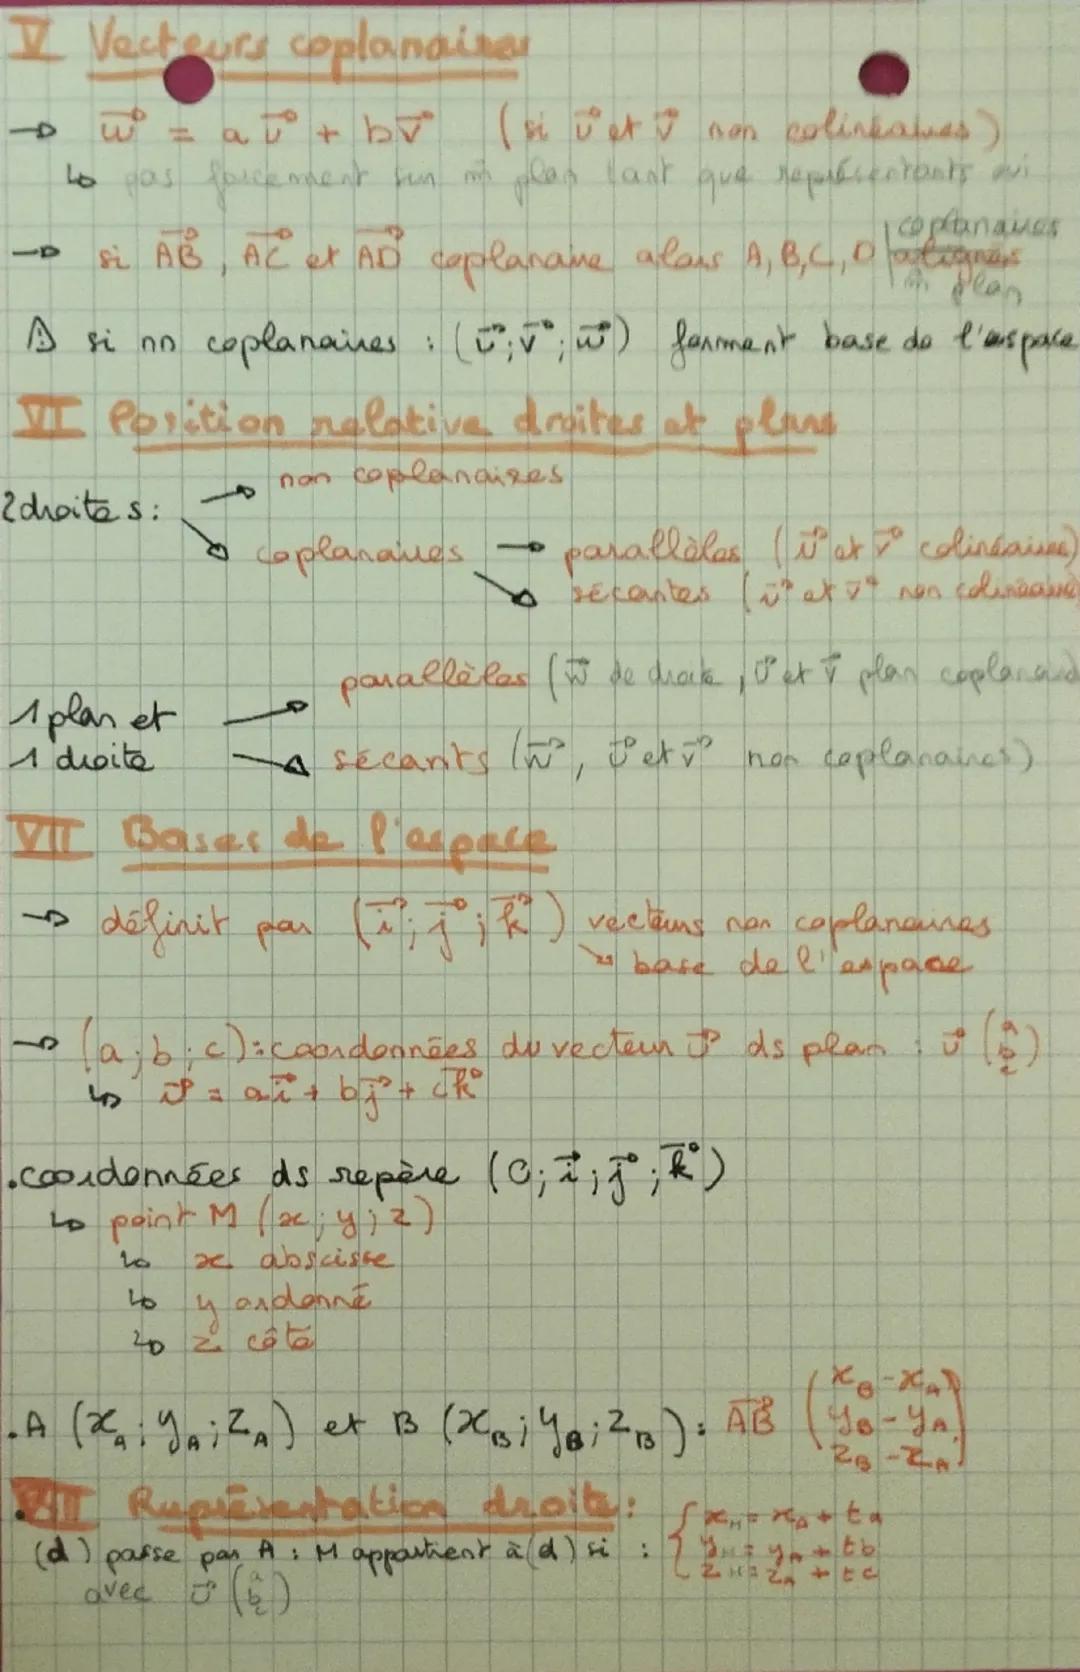 V Vecteurs coplanaires
→ w⃗ = a u⃗ + b v⃗ (si u⃗ et v⃗ non colinéaires)
↳ pas forcément sur m̂ plan tant que représentants oui
→ si AB⃗, AC⃗ et AD⃗ coplanaire alors A, B, C, D coplanaires
alignés
m̂ plan
⚠ si nn coplanaires : (u⃗; v⃗; w⃗) forment base de l'espace
VI Position relative droites et plans
→ non coplanaires
2 droites :
→ coplanaires → parallèles (u⃗ et v⃗ colinéaires)
→ sécantes (u⃗ et v⃗ non colinéaires
parallèles (w⃗ de droite, u⃗ et v⃗ plan coplanaires
1 plan et →
1 droite → sécants (w⃗, u⃗ et v⃗ non coplanaires)
VII Bases de l'espace
→ définit par (i⃗; j⃗; k⃗) vecteurs non coplanaires
↳ base de l'espace
→ (a; b; c): coordonnées du vecteur u⃗ ds plan : u⃗ (a b c)
↳ u⃗ = a i⃗ + b j⃗ + c k⃗
. coordonnées ds repère (O; i⃗; j⃗; k⃗)
↳ point M (x; y; z)
↳ x abscisse
↳ y ordonné
↳ z côté
. A (x_A; y_A; z_A) et B (x_B; y_B; z_B): AB⃗ (x_B - x_A
y_B - y_A
z_B - z_A)
VIII Représentation droite :
(d) passe par A : M appartient à (d) si : { x_M = x_A + ta
y_M = y_A + tb
z_M = z_A + tc
avec u⃗ (a b c)